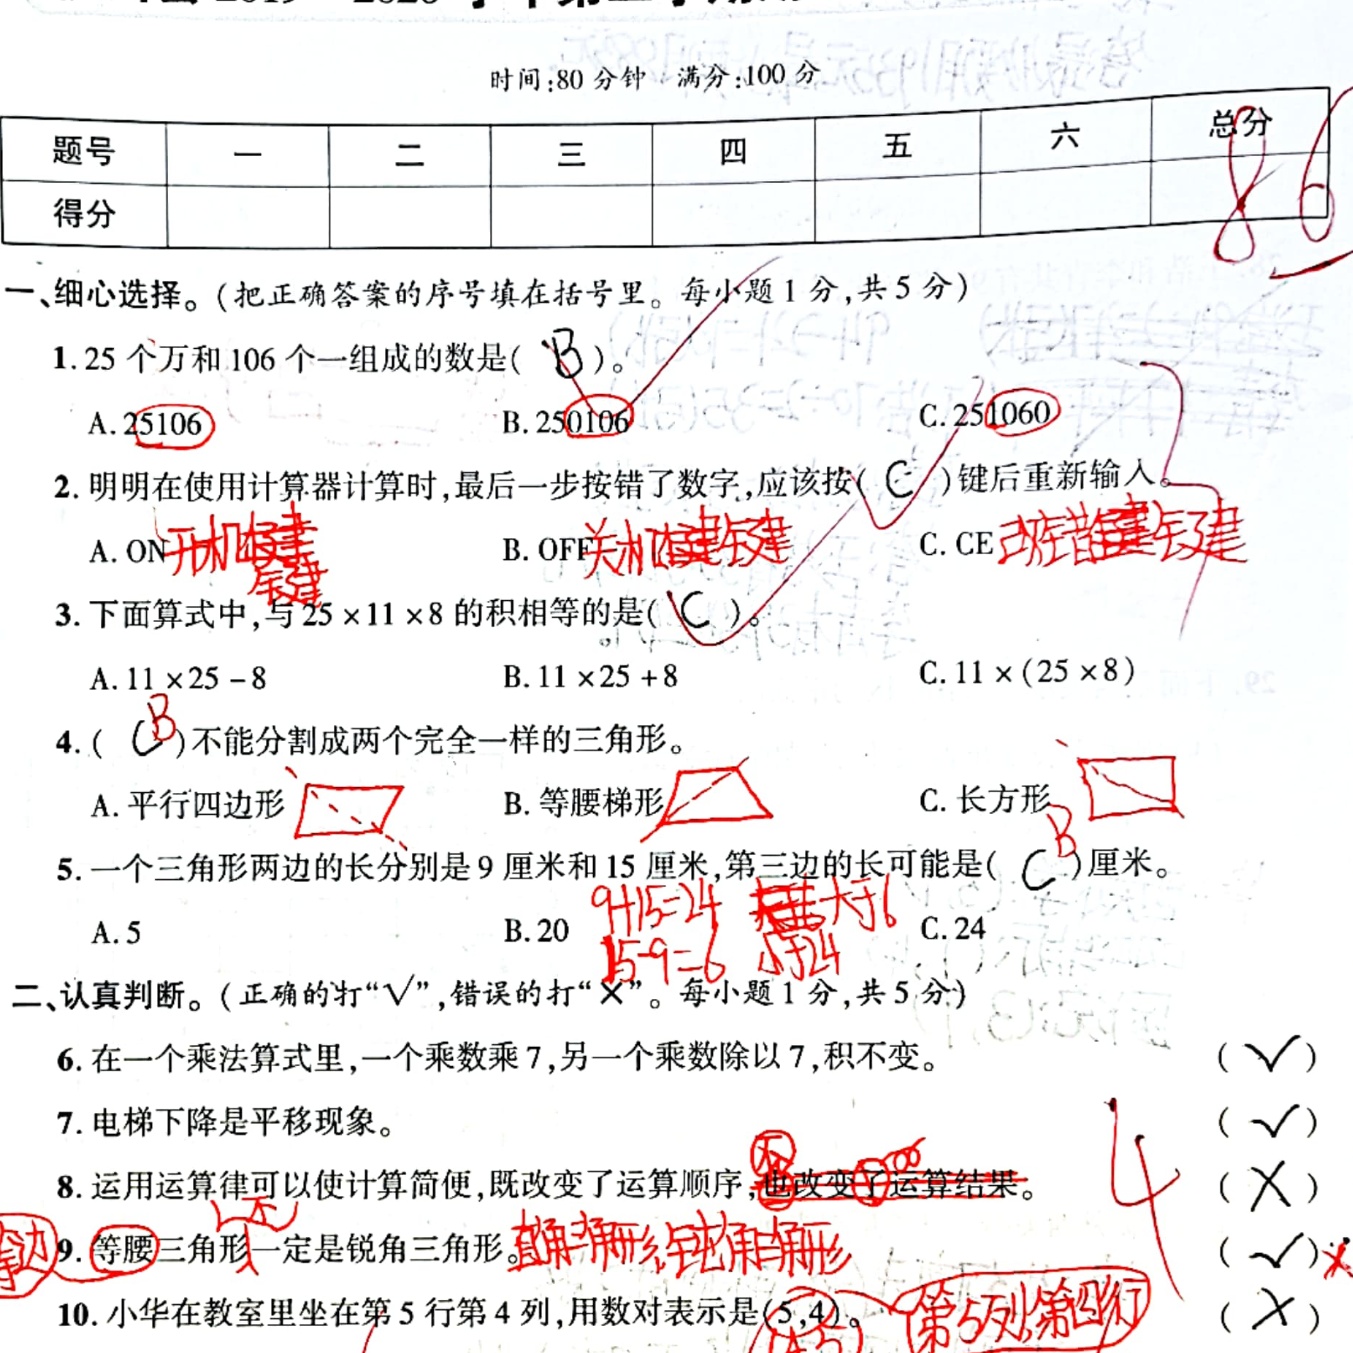 时间:80 分钟 满分:100 分
题号 一 二 三 四 五 六 总分
得分
86
一、细心选择。(把正确答案的序号填在括号里。每小题 1 分,共 5 分)
1. 25 个万和 106 个一组成的数是( B )。
A. 25106 B. 250106 C. 251060
3
2. 明明在使用计算器计算时,最后一步按错了数字,应该按( C )键后重新输入。
A. ON 开机键 B. OFF 关机键 C. CE 改错键
3. 下面算式中,与 25 ×11 ×8 的积相等的是( C )。
A. 11 ×25 -8 B. 11 ×25 +8 C. 11 ×(25 ×8)
4. ( C B )不能分割成两个完全一样的三角形。
A. 平行四边形 B. 等腰梯形 C. 长方形
5. 一个三角形两边的长分别是 9 厘米和 15 厘米,第三边的长可能是( C B )厘米。
A. 5 B. 20 C. 24
9+15=24 大于6
15-9=6 小于24
二、认真判断。(正确的打“√”,错误的打“×”。每小题 1 分,共 5 分)
6. 在一个乘法算式里,一个乘数乘 7,另一个乘数除以 7,积不变。 ( √ )
7. 电梯下降是平移现象。 ( √ )
4
8. 运用运算律可以使计算简便,既改变了运算顺序,也改变了运算结果。 ( × )
不
9. 等腰三角形一定是锐角三角形。 直角三角形,钝角三角形 ( √ ) ×
等边
10. 小华在教室里坐在第 5 行第 4 列,用数对表示是(5,4)。 第5列,第四行 ( × )
(4,5)